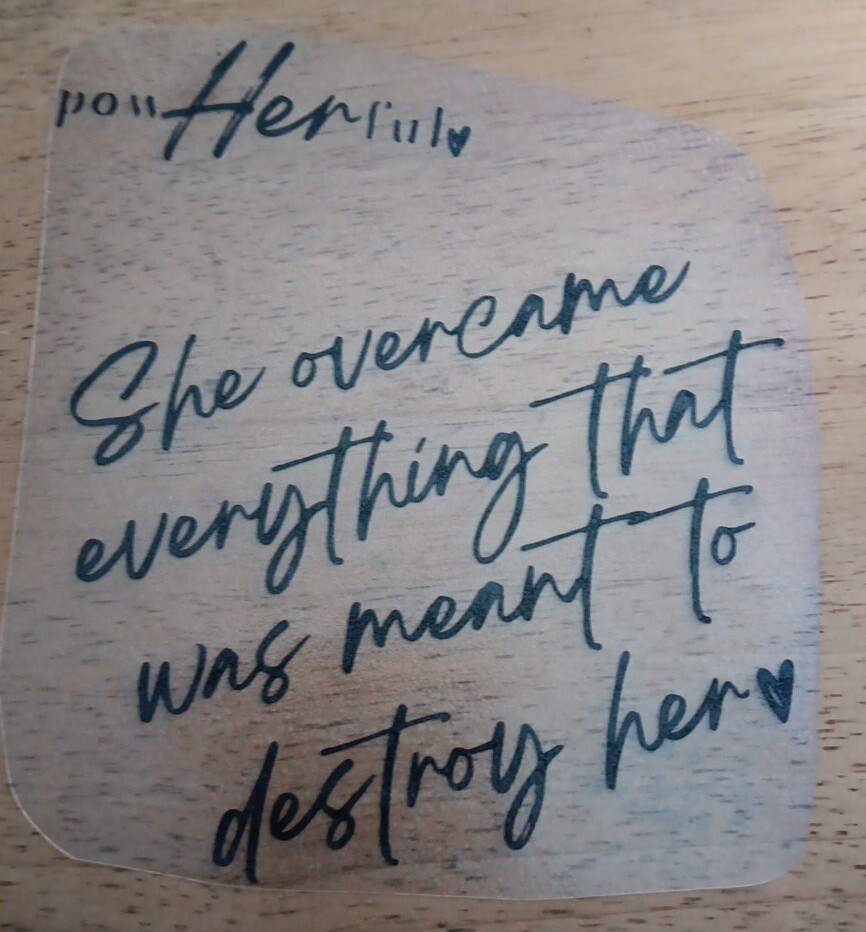 powHerful♥
She overcame
everything that
was meant to
destroy her♥